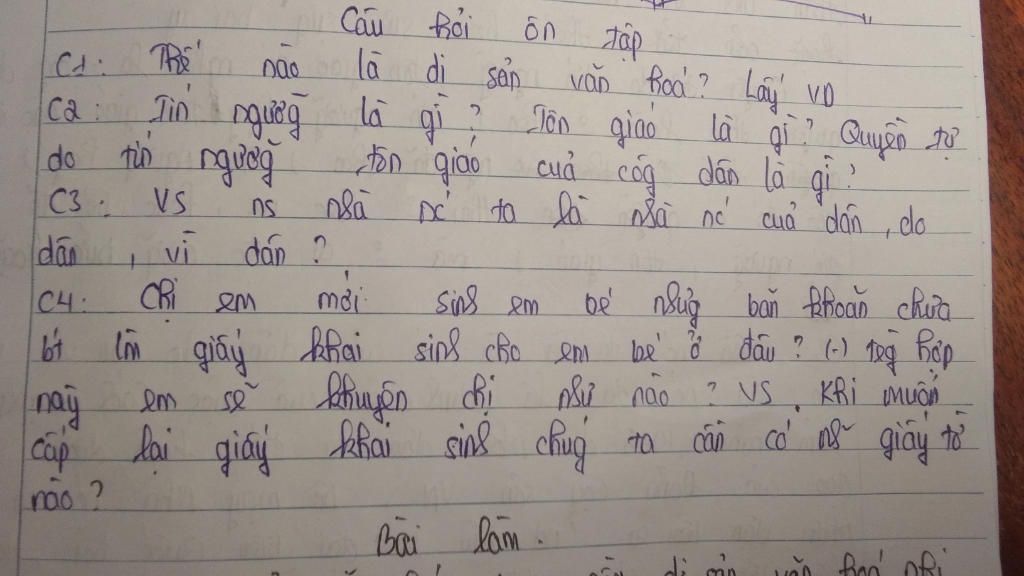 Câu hỏi ôn tập
C1: Thế nào là di sản văn hoá? Lấy VD
C2: Tín ngưỡg là gì? Tôn giáo là gì? Quyền tự
do tín ngưỡg tôn giáo của côg dân là gì?
C3: VS ns nhà nc ta là nhà nc của dân, do
dân, vì dân?
C4: Chị em mới sinh em bé nhưg băn khoăn chưa
bt làm giấy khai sinh cho em bé ở đâu? (-) hợp
này em sẽ khuyên chị như nào? VS. Khi muốn
cấp lại giấy khai sinh chúg ta cần có nh~ giấy tờ
nào?
Bài làm.
di sản văn hoá phi